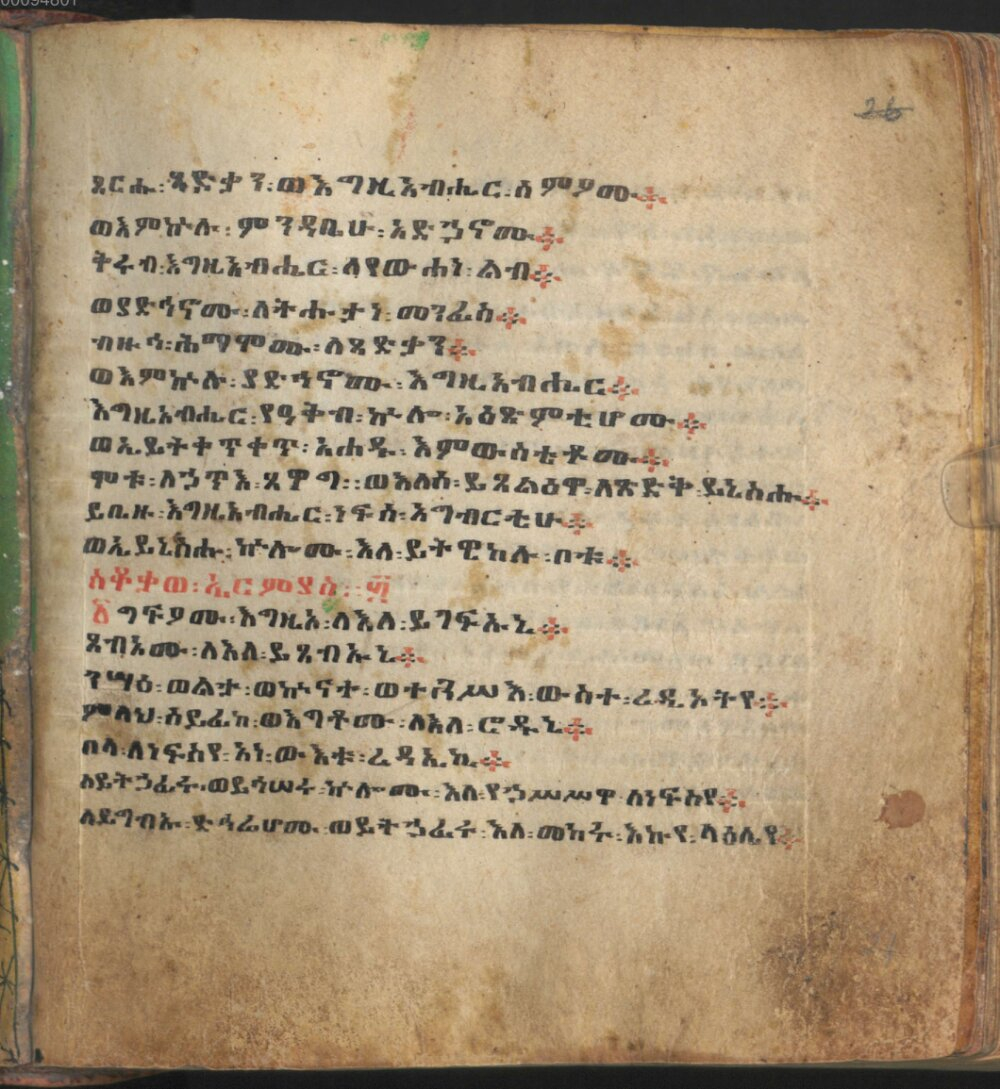 00094801
26
ጸርሑ፡ጻድቃን፡ወእግዚአብሔር፡ሰምዖሙ፨
ወእምኵሉ፡ምንዳቤሁ፡አድኃኖሙ፨
ቅሩብ፡እግዚአብሔር፡ለየውሐነ፡ልብ፨
ወያድኅኖሙ፡ለትሑታነ፡መንፈስ፨
ብዙኅ፡ሕማሞሙ፡ለጻድቃን፨
ወእምኵሉ፡ያድኅኖሙ፡እግዚአብሔር፨
እግዚአብሔር፡የዓቅብ፡ኵሎ፡አዕፅምቲሆሙ፨
ወኢይትቀጥቀጥ፡አሐዱ፡እምውስቴቶሙ፨
ሞቱ፡ለኃጥእ፡ጸዋግ፡፡ወእለሰ፡ይጸልዕዋ፡ለጽድቅ፡ይኔስሑ፨
ይቤዙ፡እግዚአብሔር፡ነፍሰ፡አግብርቲሁ፨
ወኢይኔስሑ፡ኵሎሙ፡እለ፡ይትዌከሉ፡ቦቱ፨
ሰቆቃወ፡ኤርምያስ፡
ግፍዖሙ፡እግዚአ፡ለእለ፡ይገፍኡኒ፨
ጽብኦሙ፡ለእለ፡ይጸብኡኒ፨
ንሣዕ፡ወልታ፡ወኵናተ፡ወተንሥእ፡ውስተ፡ረዲኦትየ፨
ምላህ፡ሰይፈከ፡ወእግቶሙ፡ለእለ፡ሮዱኒ፨
በላ፡ለነፍስየ፡አነ፡ውእቱ፡ረዳኢኪ፨
ለይትኃፈሩ፡ወይኅሠሩ፡ኵሎሙ፡እለ፡የኃሥሥዋ፡ለነፍስየ፨
ለይግብኡ፡ድኅሬሆሙ፡ወይትኃፈሩ፡እለ፡መከሩ፡እኩየ፡ላዕሌየ፨